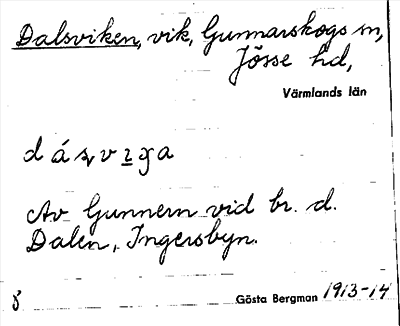 Dalsviken, vik, Gunnarskogs sn,
Jösse hd,
Värmlands län
Av Gunnern vid br. d.
Dalen, Ingersbyn.
Gösta Bergman 1913-14